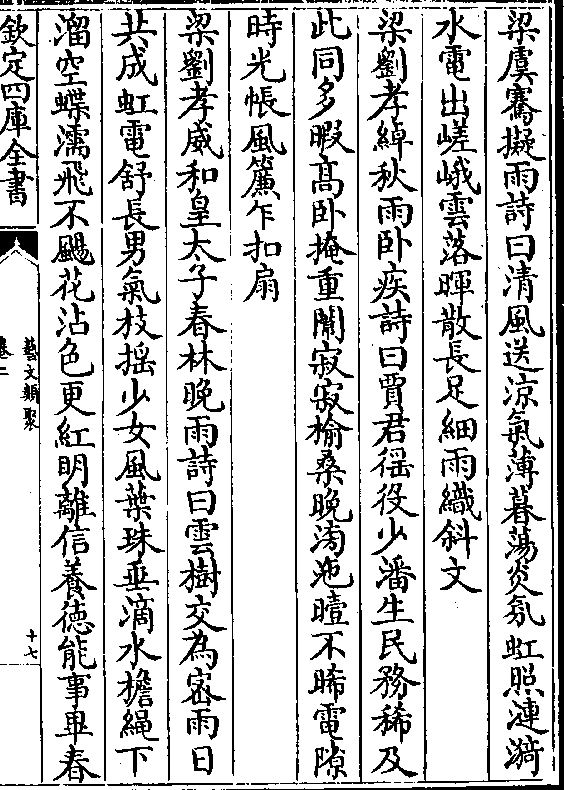 梁虞騫擬雨詩曰清風送涼氣薄暮蕩炎氛虹照漣漪
水電出嵯峨雲落暉散長足細雨織斜文
梁劉孝綽秋雨卧疾詩曰賈君徭役少潘生民務稀及
此同多暇髙卧掩重闈寂寂榆桑晚滂沲曀不晞電隙
時光帳風簾乍扣扇
梁劉孝威和皇太子春林晚雨詩曰雲樹交為宻雨日
共成虹電舒長男氣枝揺少女風葉珠垂滴水檐繩下
溜空蝶濡飛不颺花沾色更紅明離信養徳能事畢春
欽定四庫全書
藝文類聚
卷二
十七